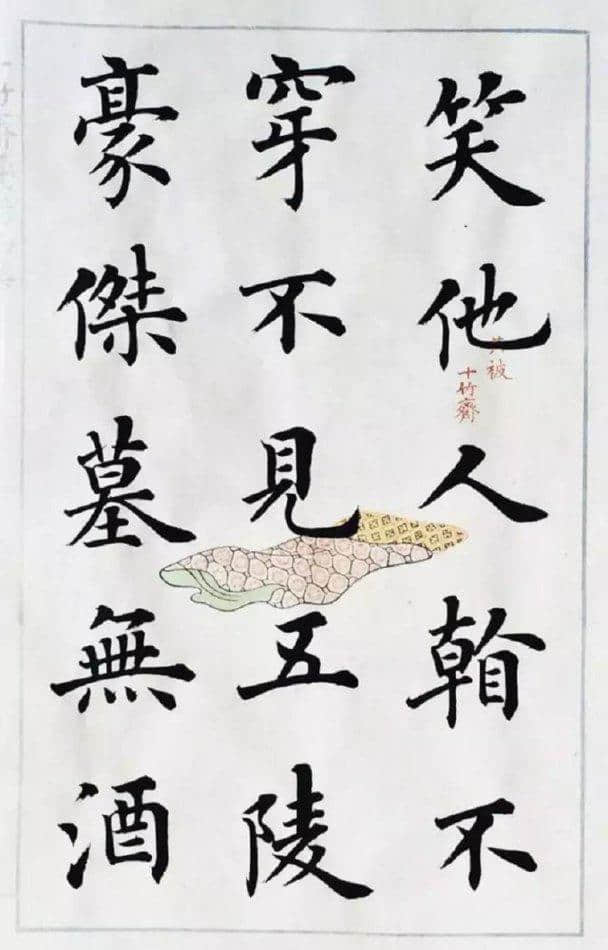 笑他人看不
穿不見五陵
豪傑墓無酒
共被
十竹齋